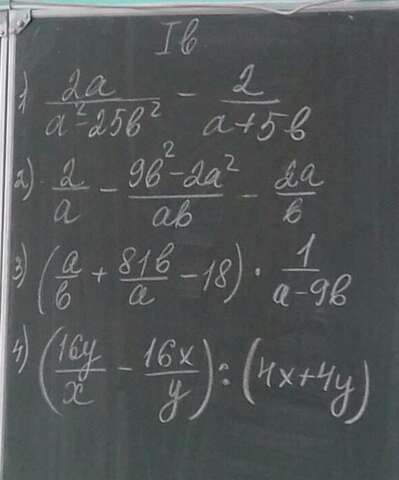 I в
1) 2a/(a²-25b²) - 2/(a+5b)
2) 2/a - (9b²-2a²)/(ab) - 2a/b
3) (a/b + 81b/a - 18) · 1/(a-9b)
4) (16y/x - 16x/y) : (4x+4y)